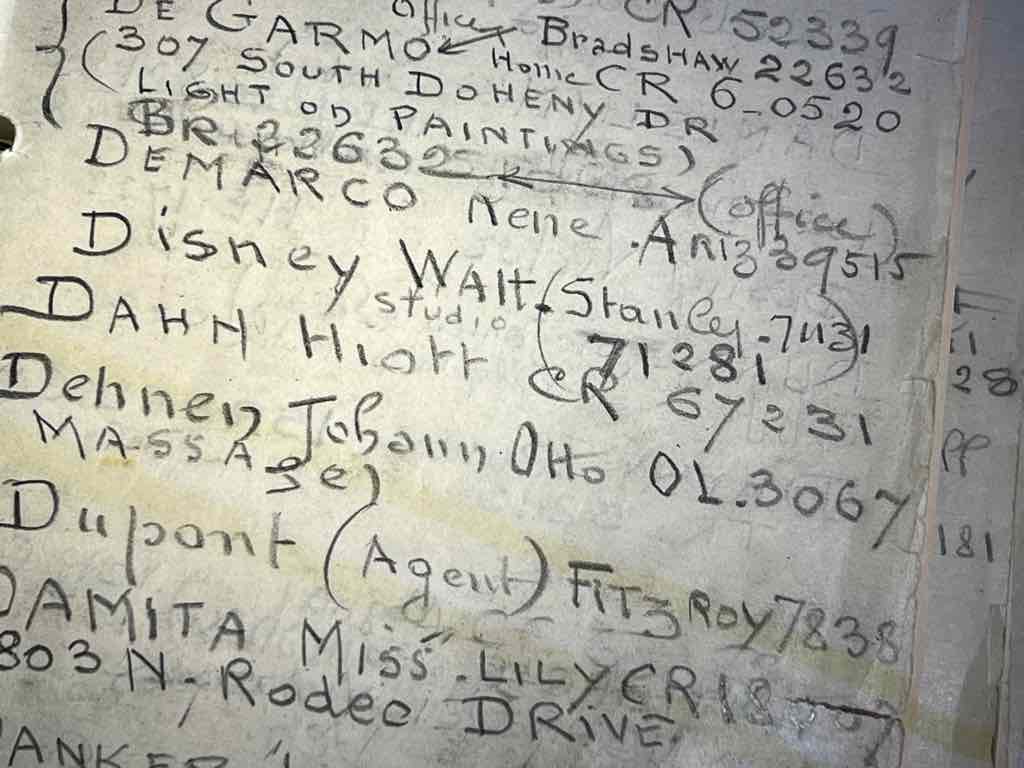 DE GARMO office CR 52339
Bradshaw 22632
307 SOUTH DOHENY DR
Home CR 6-0520
LIGHT OD PAINTINGS)
BR 22632 (office)
DEMARCO Nene. ARIZ 39515
Disney WALT. (Stanley-7431)
studio (71281)
DAHN Hiott CR 67231
Dehnen Johann Otto OL.3067
MASSAge)
Dupont (Agent) FITZROY 7838
DAMITA Miss. LILY CR 18
803 N. Rodeo DRIVE
28
181